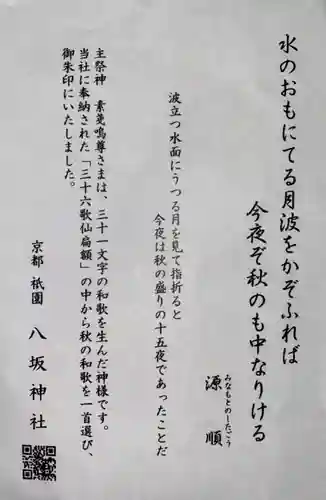 水のおもにてる月波をかぞふれば
今夜ぞ秋のも中なりける
みなもとのしたごう
源 順
波立つ水面にうつる月を見て指折ると
今夜は秋の盛りの十五夜であったことだ
主祭神 素戔嗚尊さまは、三十一文字の和歌を生んだ神様です。
当社に奉納された「三十六歌仙扁額」の中から秋の和歌を一首選び、
御朱印にいたしました。
京都 祇園 八坂神社